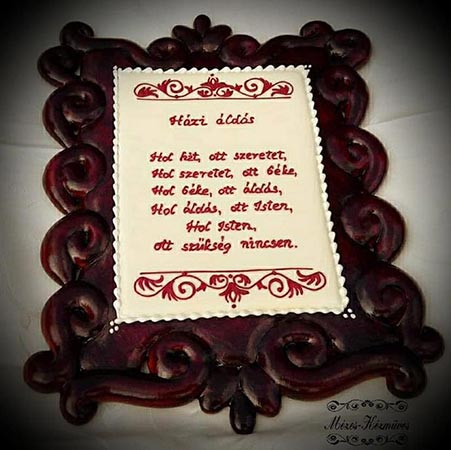 Házi áldás
Hol hit, ott szeretet,
Hol szeretet, ott béke,
Hol béke, ott áldás,
Hol áldás, ott Isten,
Hol Isten,
ott szükség nincsen.
Mézes-Kézműves